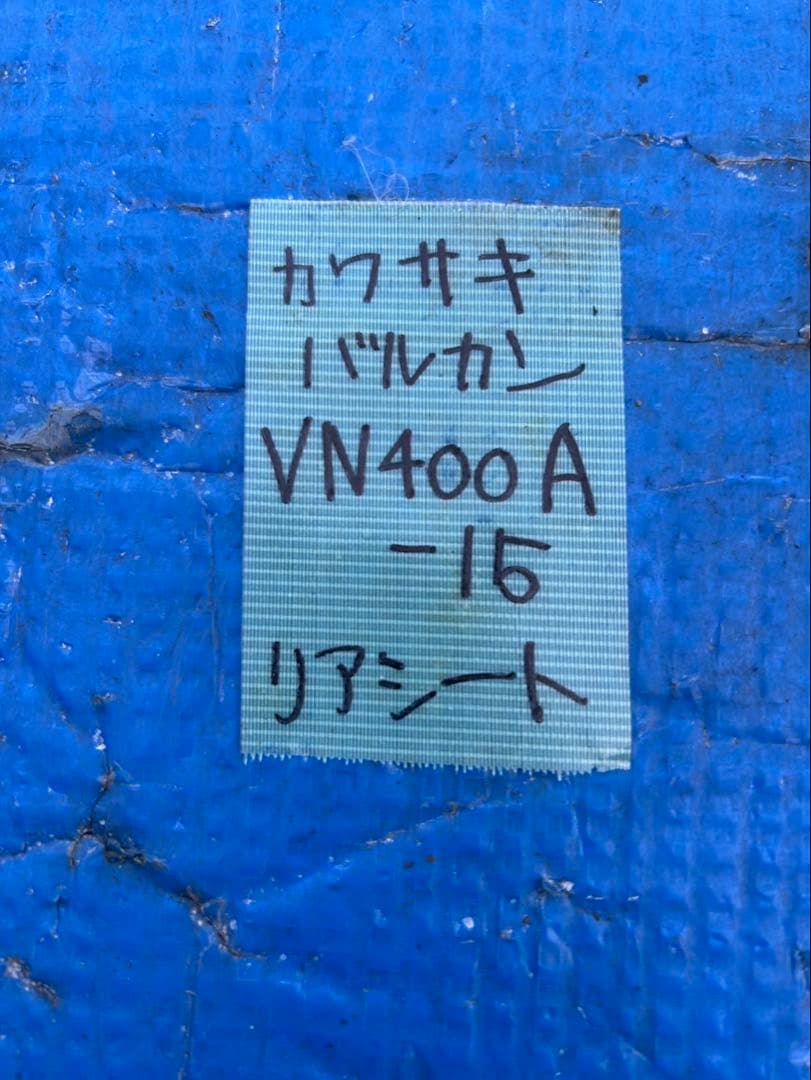 カワサキ
バルカン
VN400A
-15
リアシート